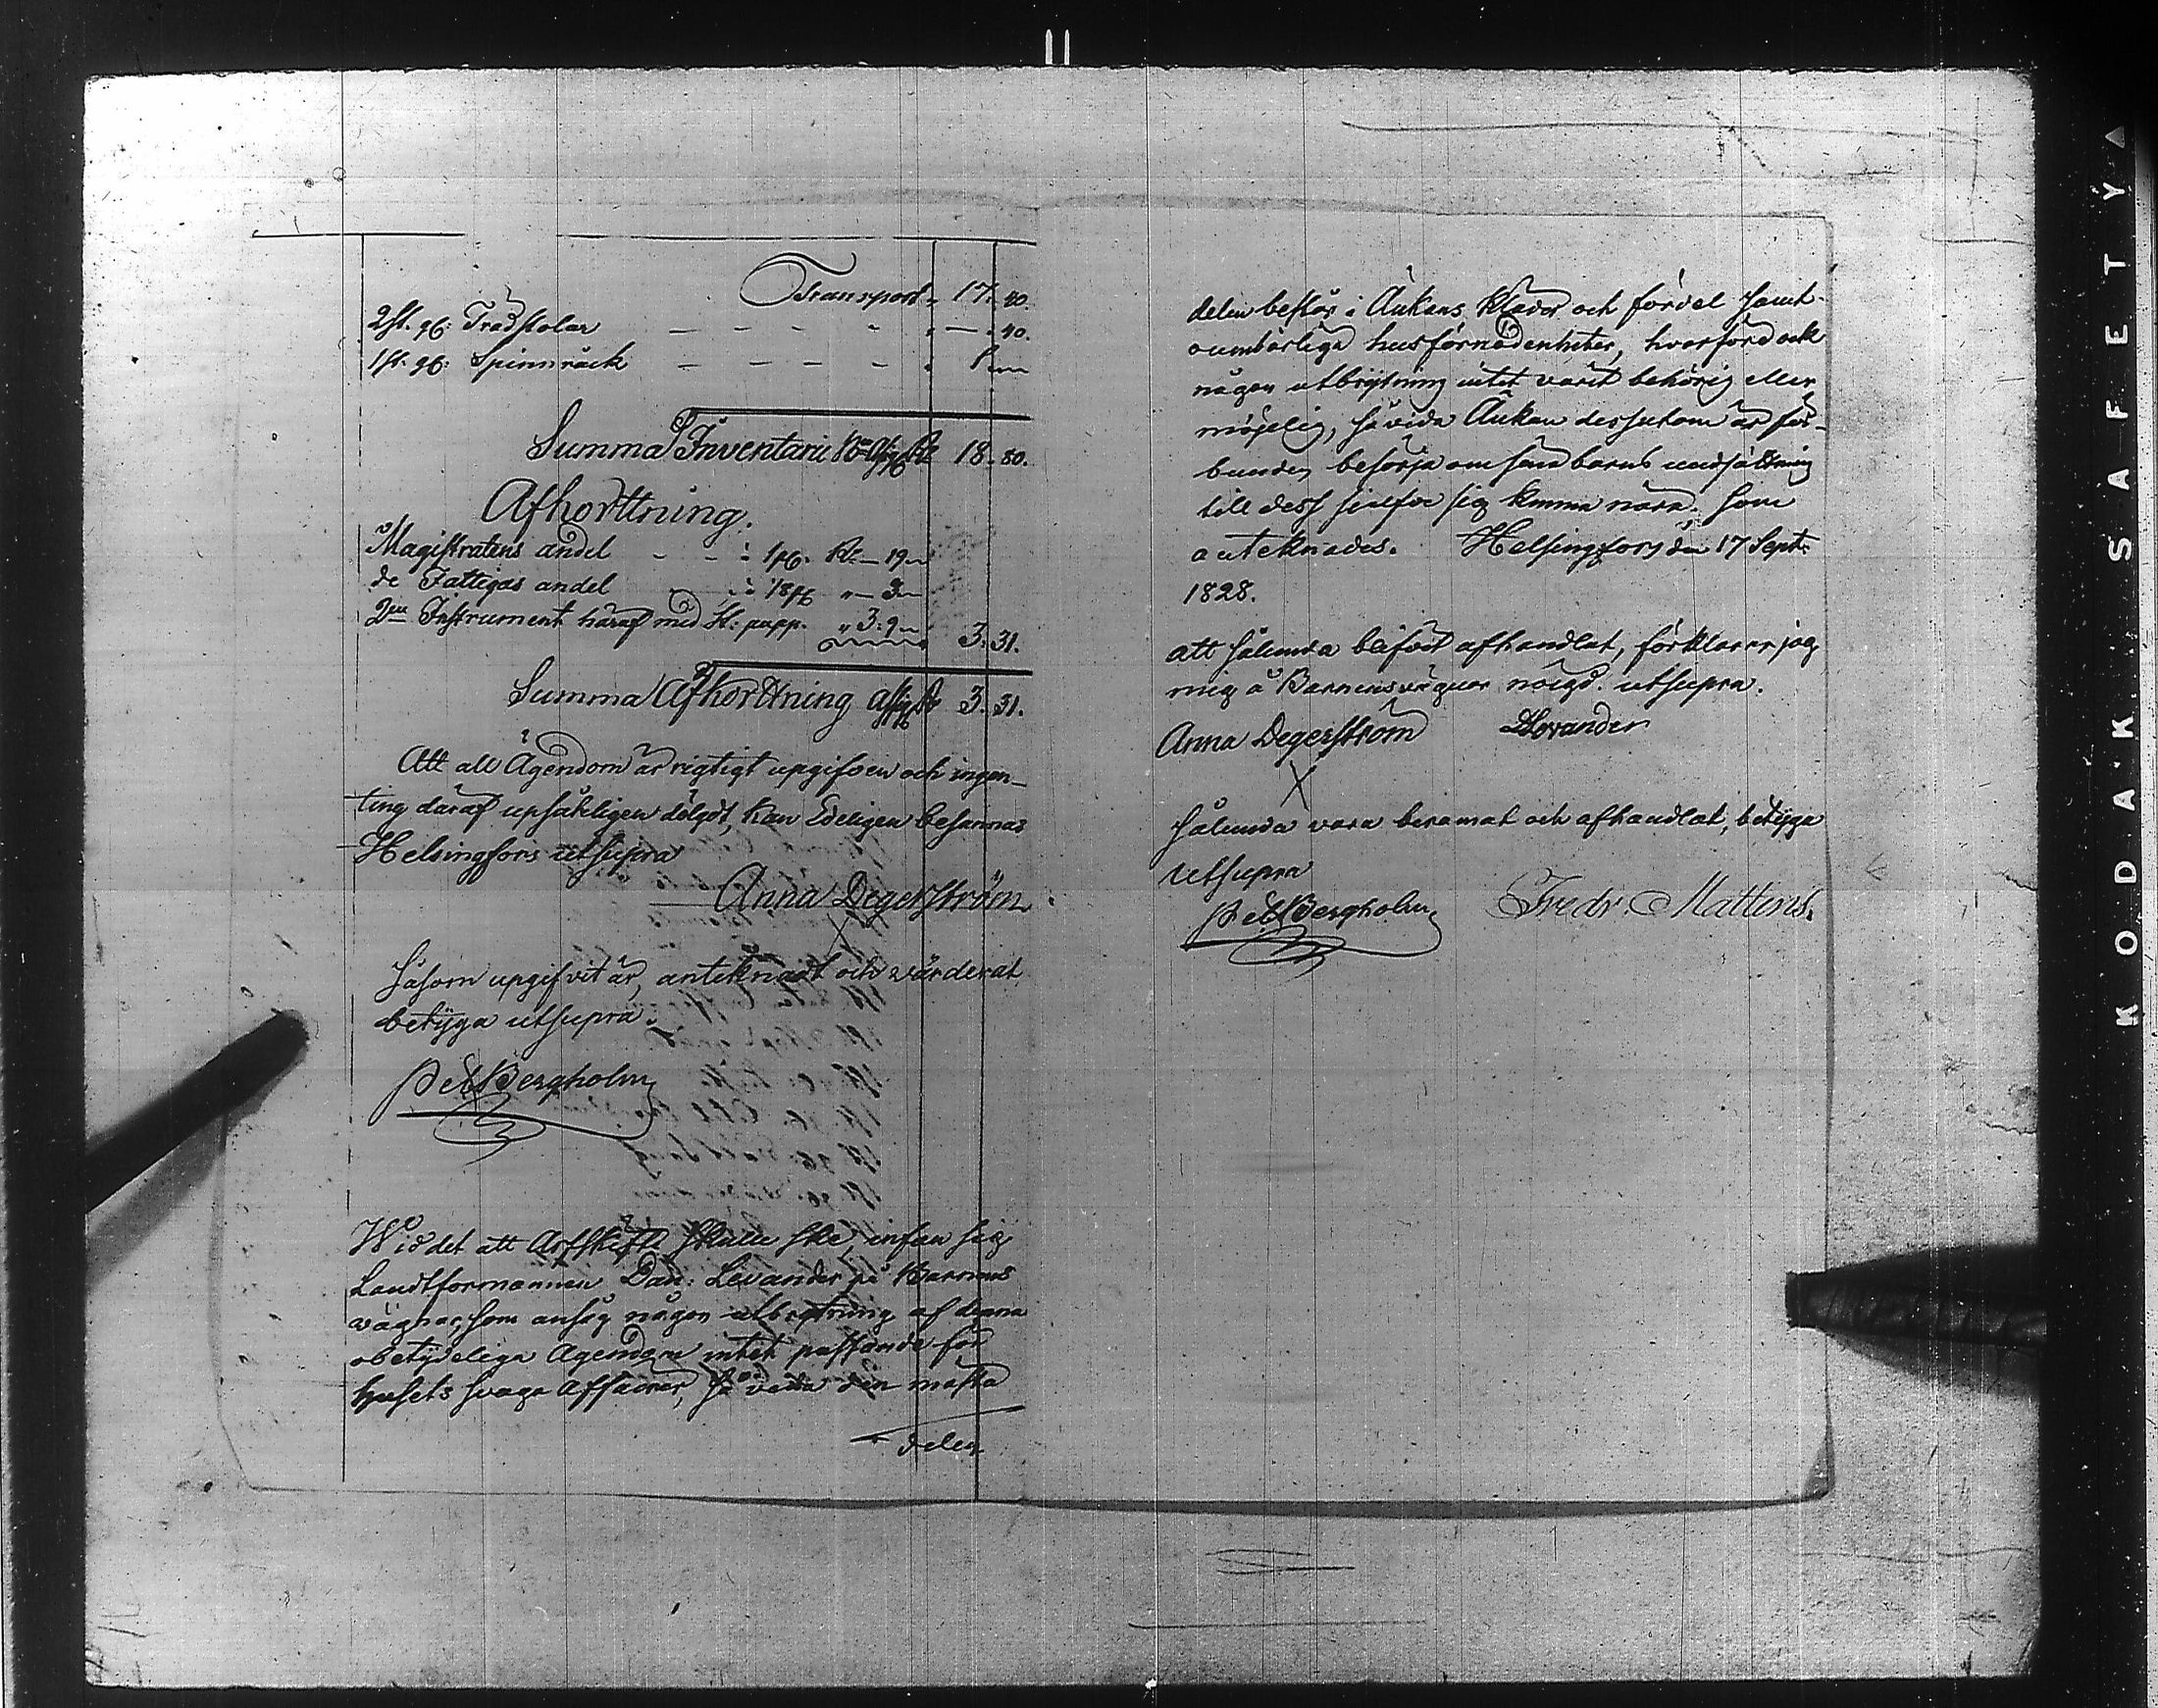 Transport 17. 40.
2 st. gl: Trädstolar — — — — — 40.
1 st. gl: Spinnråck — — — — 1 —
Summa Inventarii Rub 18. 80.
Afkorttning.
Magistratens andel — — à 1 pC. Rb — 19 —
de Fattigas andel — à 1/8 pC " — 3 —
2ne Instrument häraf med St: papp. " 3: 9 — 3. 31.
Summa Afkorttning 3. 31.
Att all Ägendom är rigtigt upgifven och ingen-
ting däraf upsåkligen dölgdt, kan Edeligen besannas
Helsingfors utsupra
Anna Degerström
X
Såsom upgifvit är, anteknadt och värderat,
betÿga utsupra.
Bergholm
Wid det att Arfskifte skulle ske, infan sig
Landtformannen Dan: Levander på Barnens
vägnar, som ansåg någon utbrytning af denna
obetÿdeliga Ägendom intet passande för
husets svaga Affairer, så vida den mästa
delen
delen består i Änkans Kläder och fördel samt
oumbärliga husförnödenheter, hvarföre ock
någon utbrÿtning intet varit behörig eller
möjelig, så vida Änkan dessutom är för-
bunden besörja om sina barns undsättning
till dess sielfve sig kunna nära; som
anteknades. Helsingfors den 17 Sept:
1828.
att sålunda blifvit afhandlat, förklarar jag
mig å Barnens vägnar nöigd. utsupra.
Anna Degerström Levander
X
Sålunda vara beramat och afhandlat, betÿga
utsupra
Bergholm Fredr. Mattens.
KODAK SAFETY